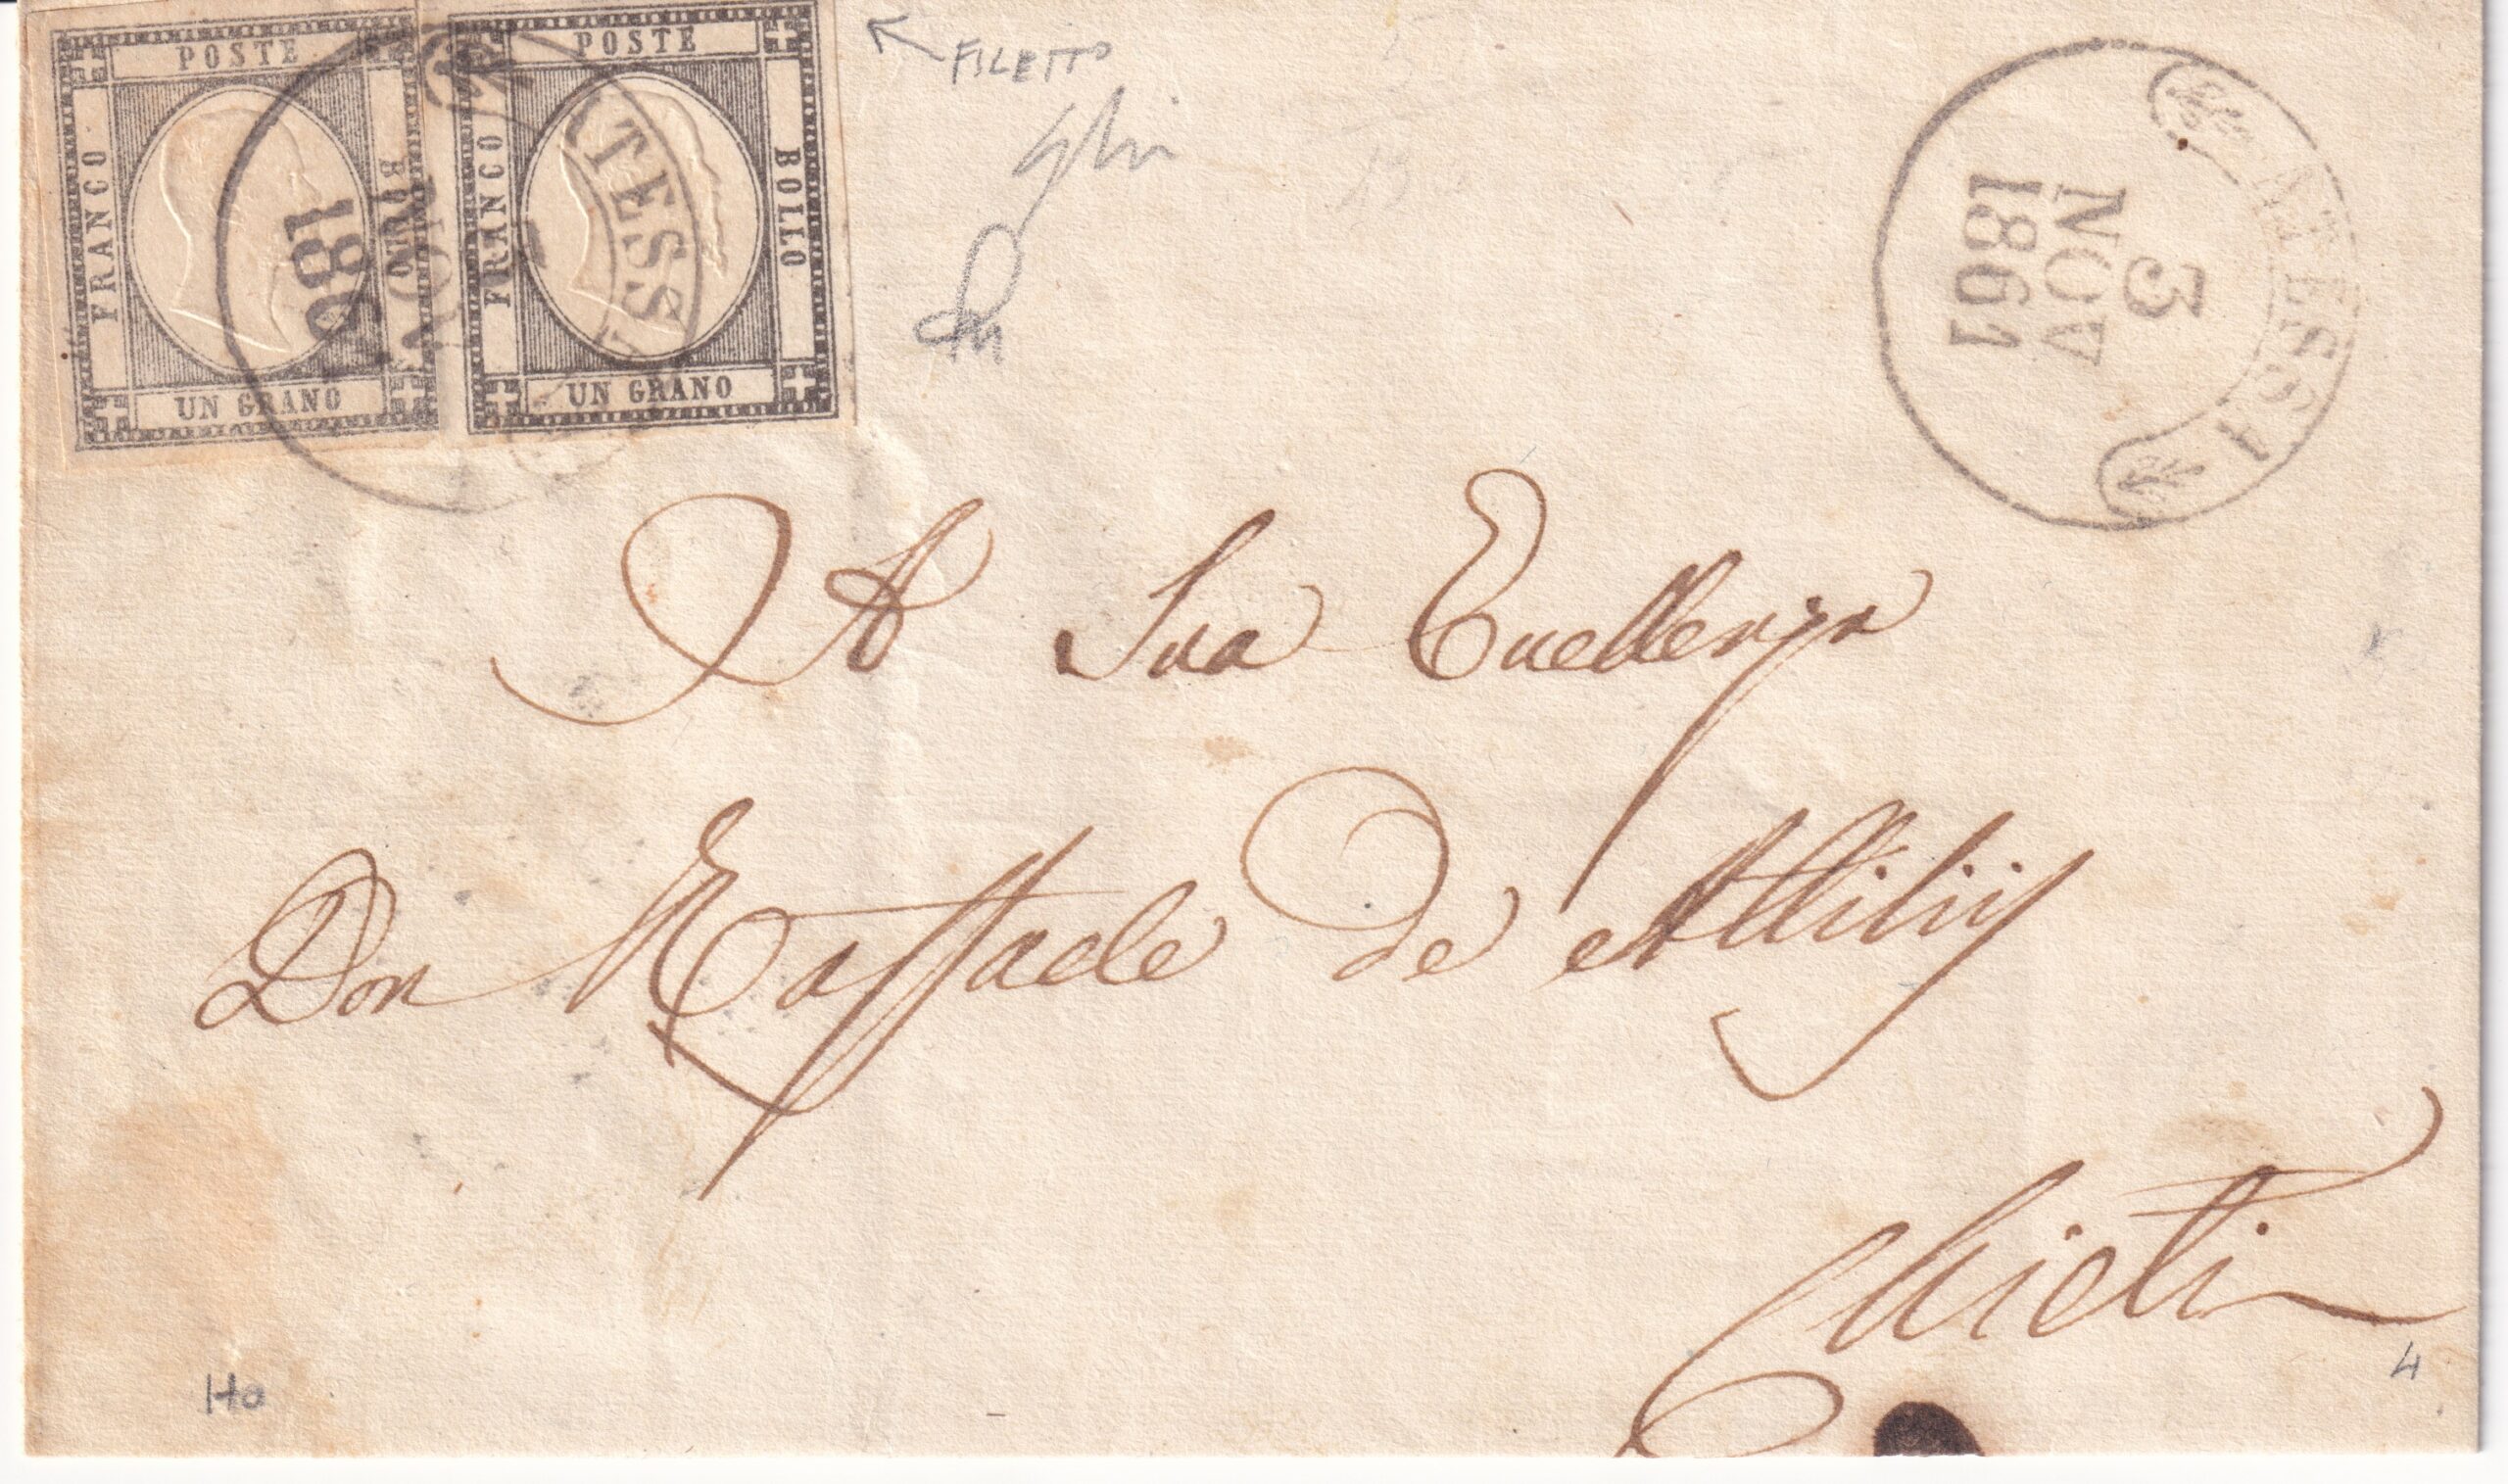 POSTE
FRANCO
BOLLO
UN GRANO
POSTE
FRANCO
BOLLO
UN GRANO
ATESSA
NOV
186
FILETTO
ATESSA
3
NOV
1861
A Sua Eccellenza
Don Raffaele de Attiliis
Chieti
4